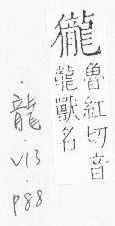 魯紅切音
籠獸名
·龍·V13·P88